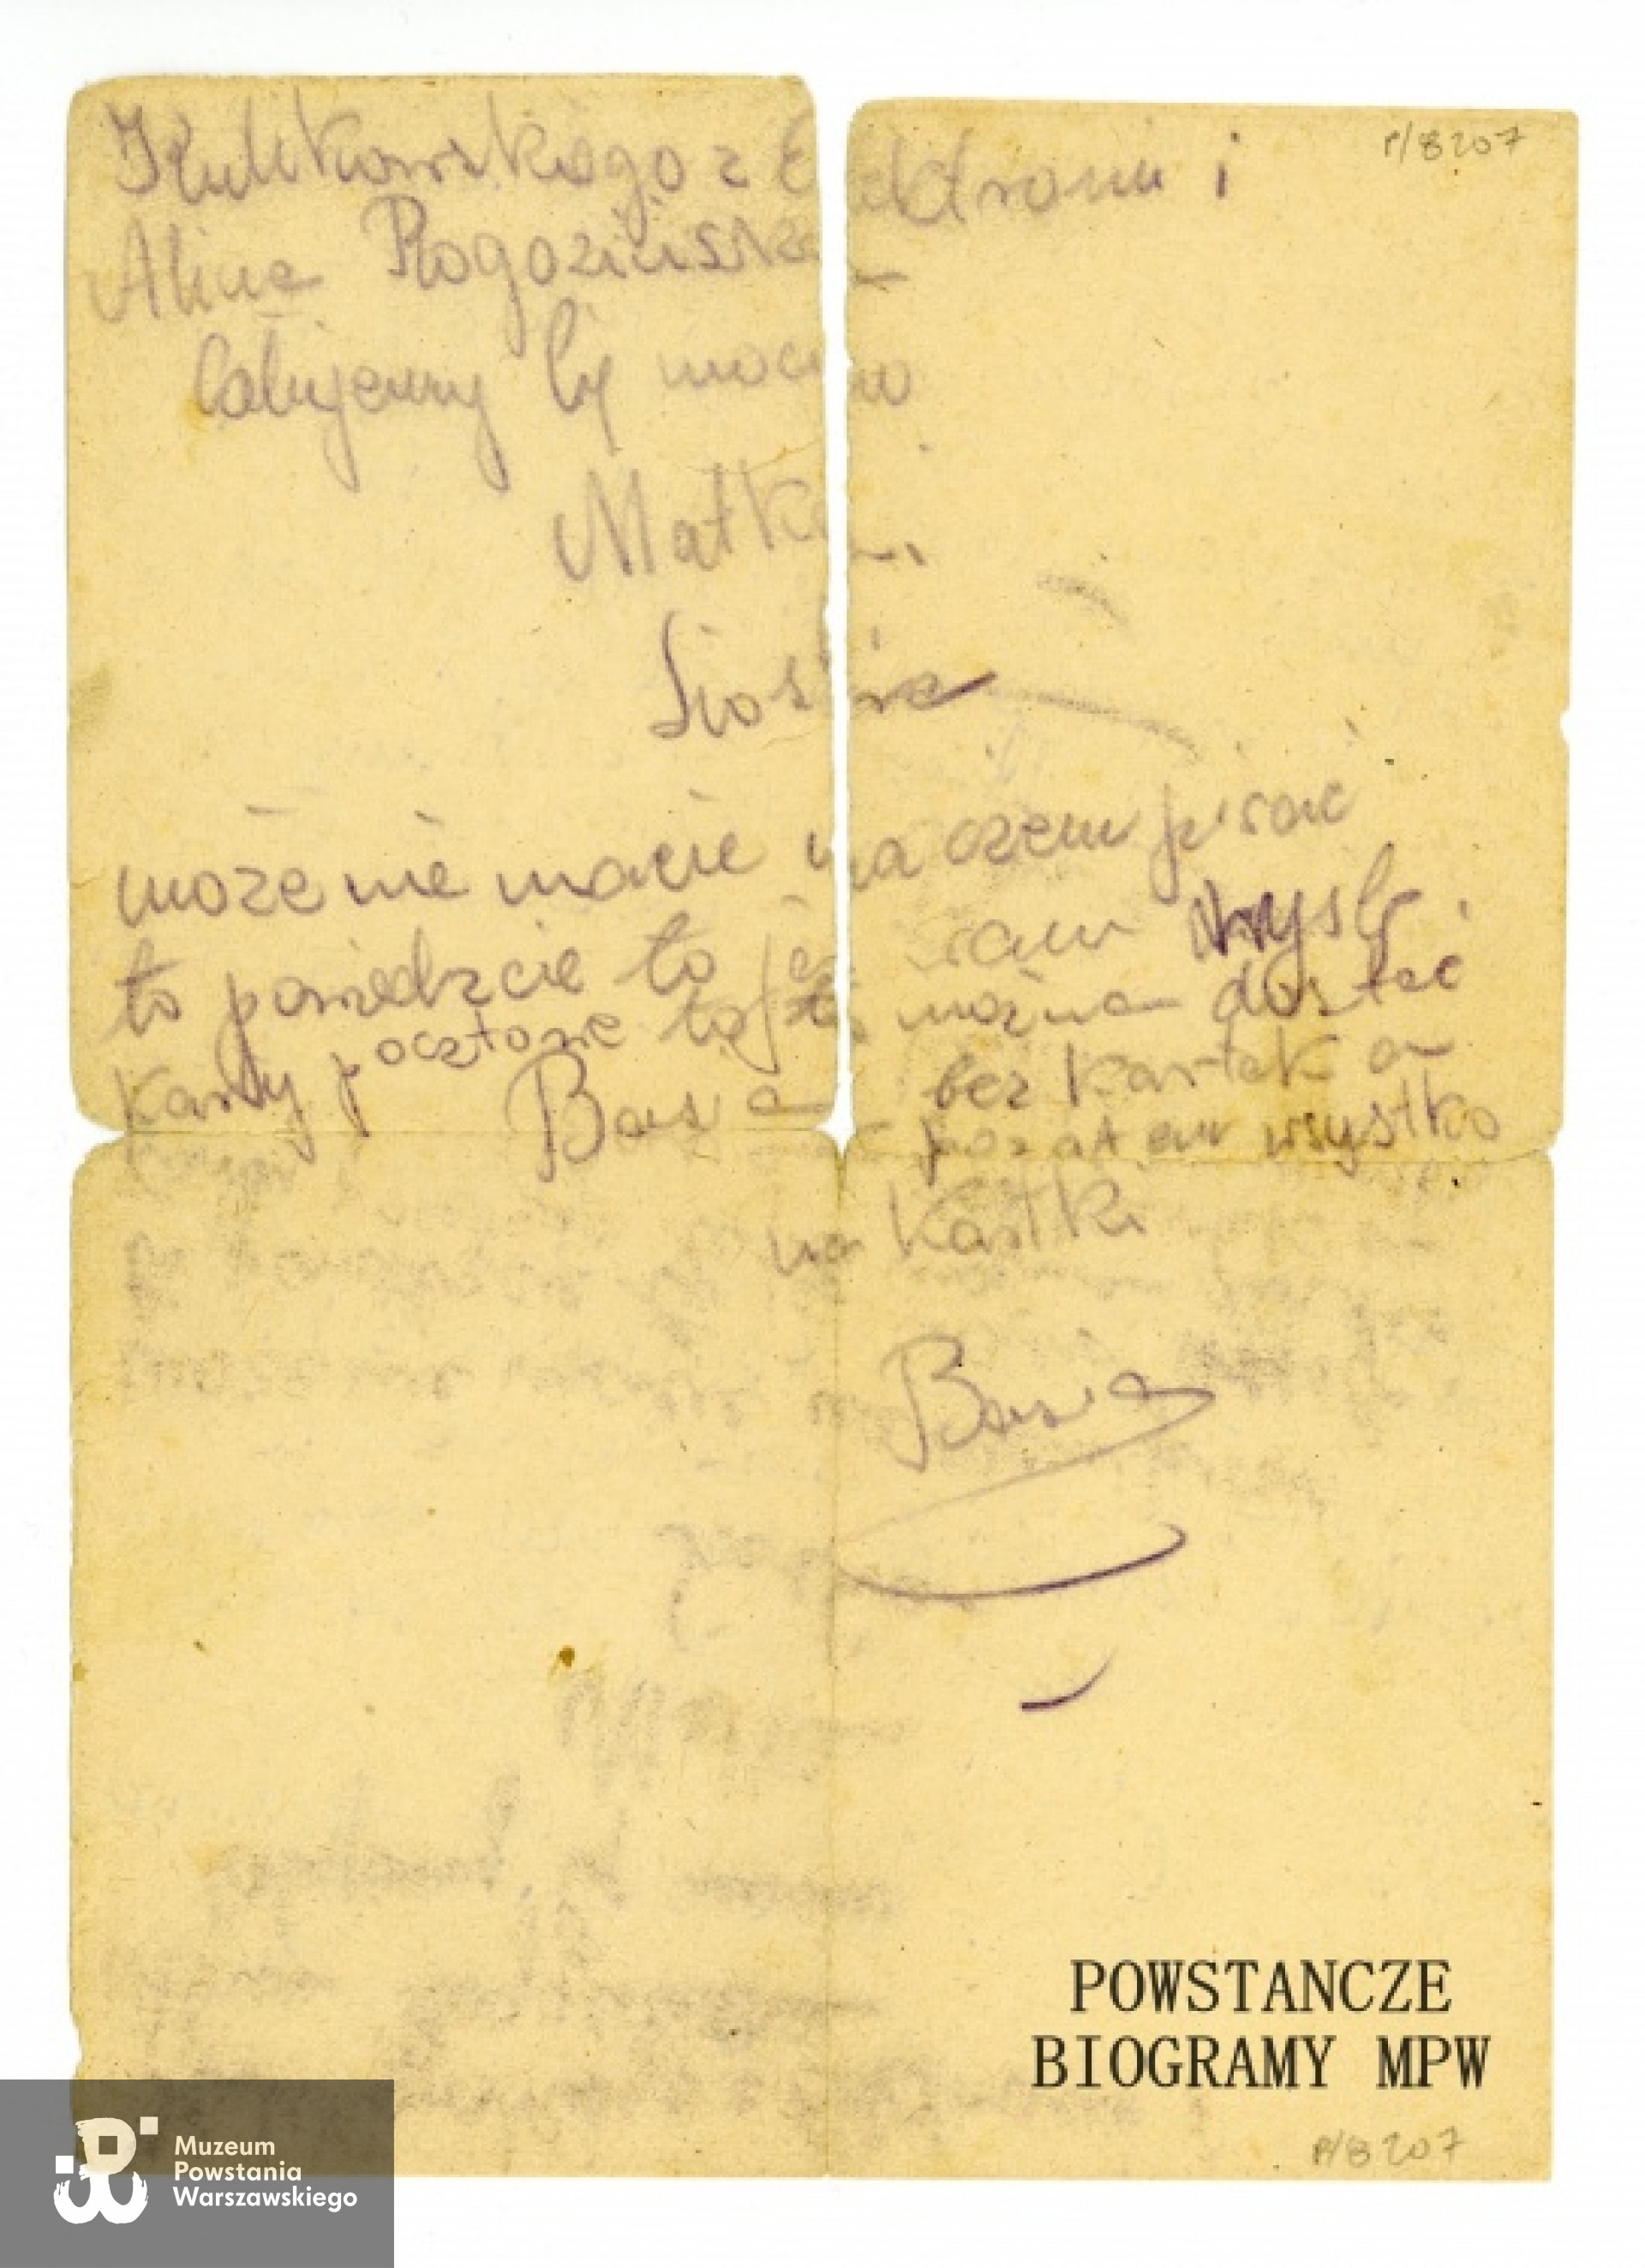 P/8207
Kulikowskiego z Elektrowni i
Alinę Rogozińską
Całujemy Cię mocno
Matka i
Siostra
może nie macie na czem pisać
to powiedzcie to ja wam wyślę
karty pocztowe to jest można dostać
Basia bez kartek a
pozatem wsystko
na kartki
Basia
POWSTANCZE
BIOGRAMY MPW
P/8207
Muzeum
Powstania
Warszawskiego